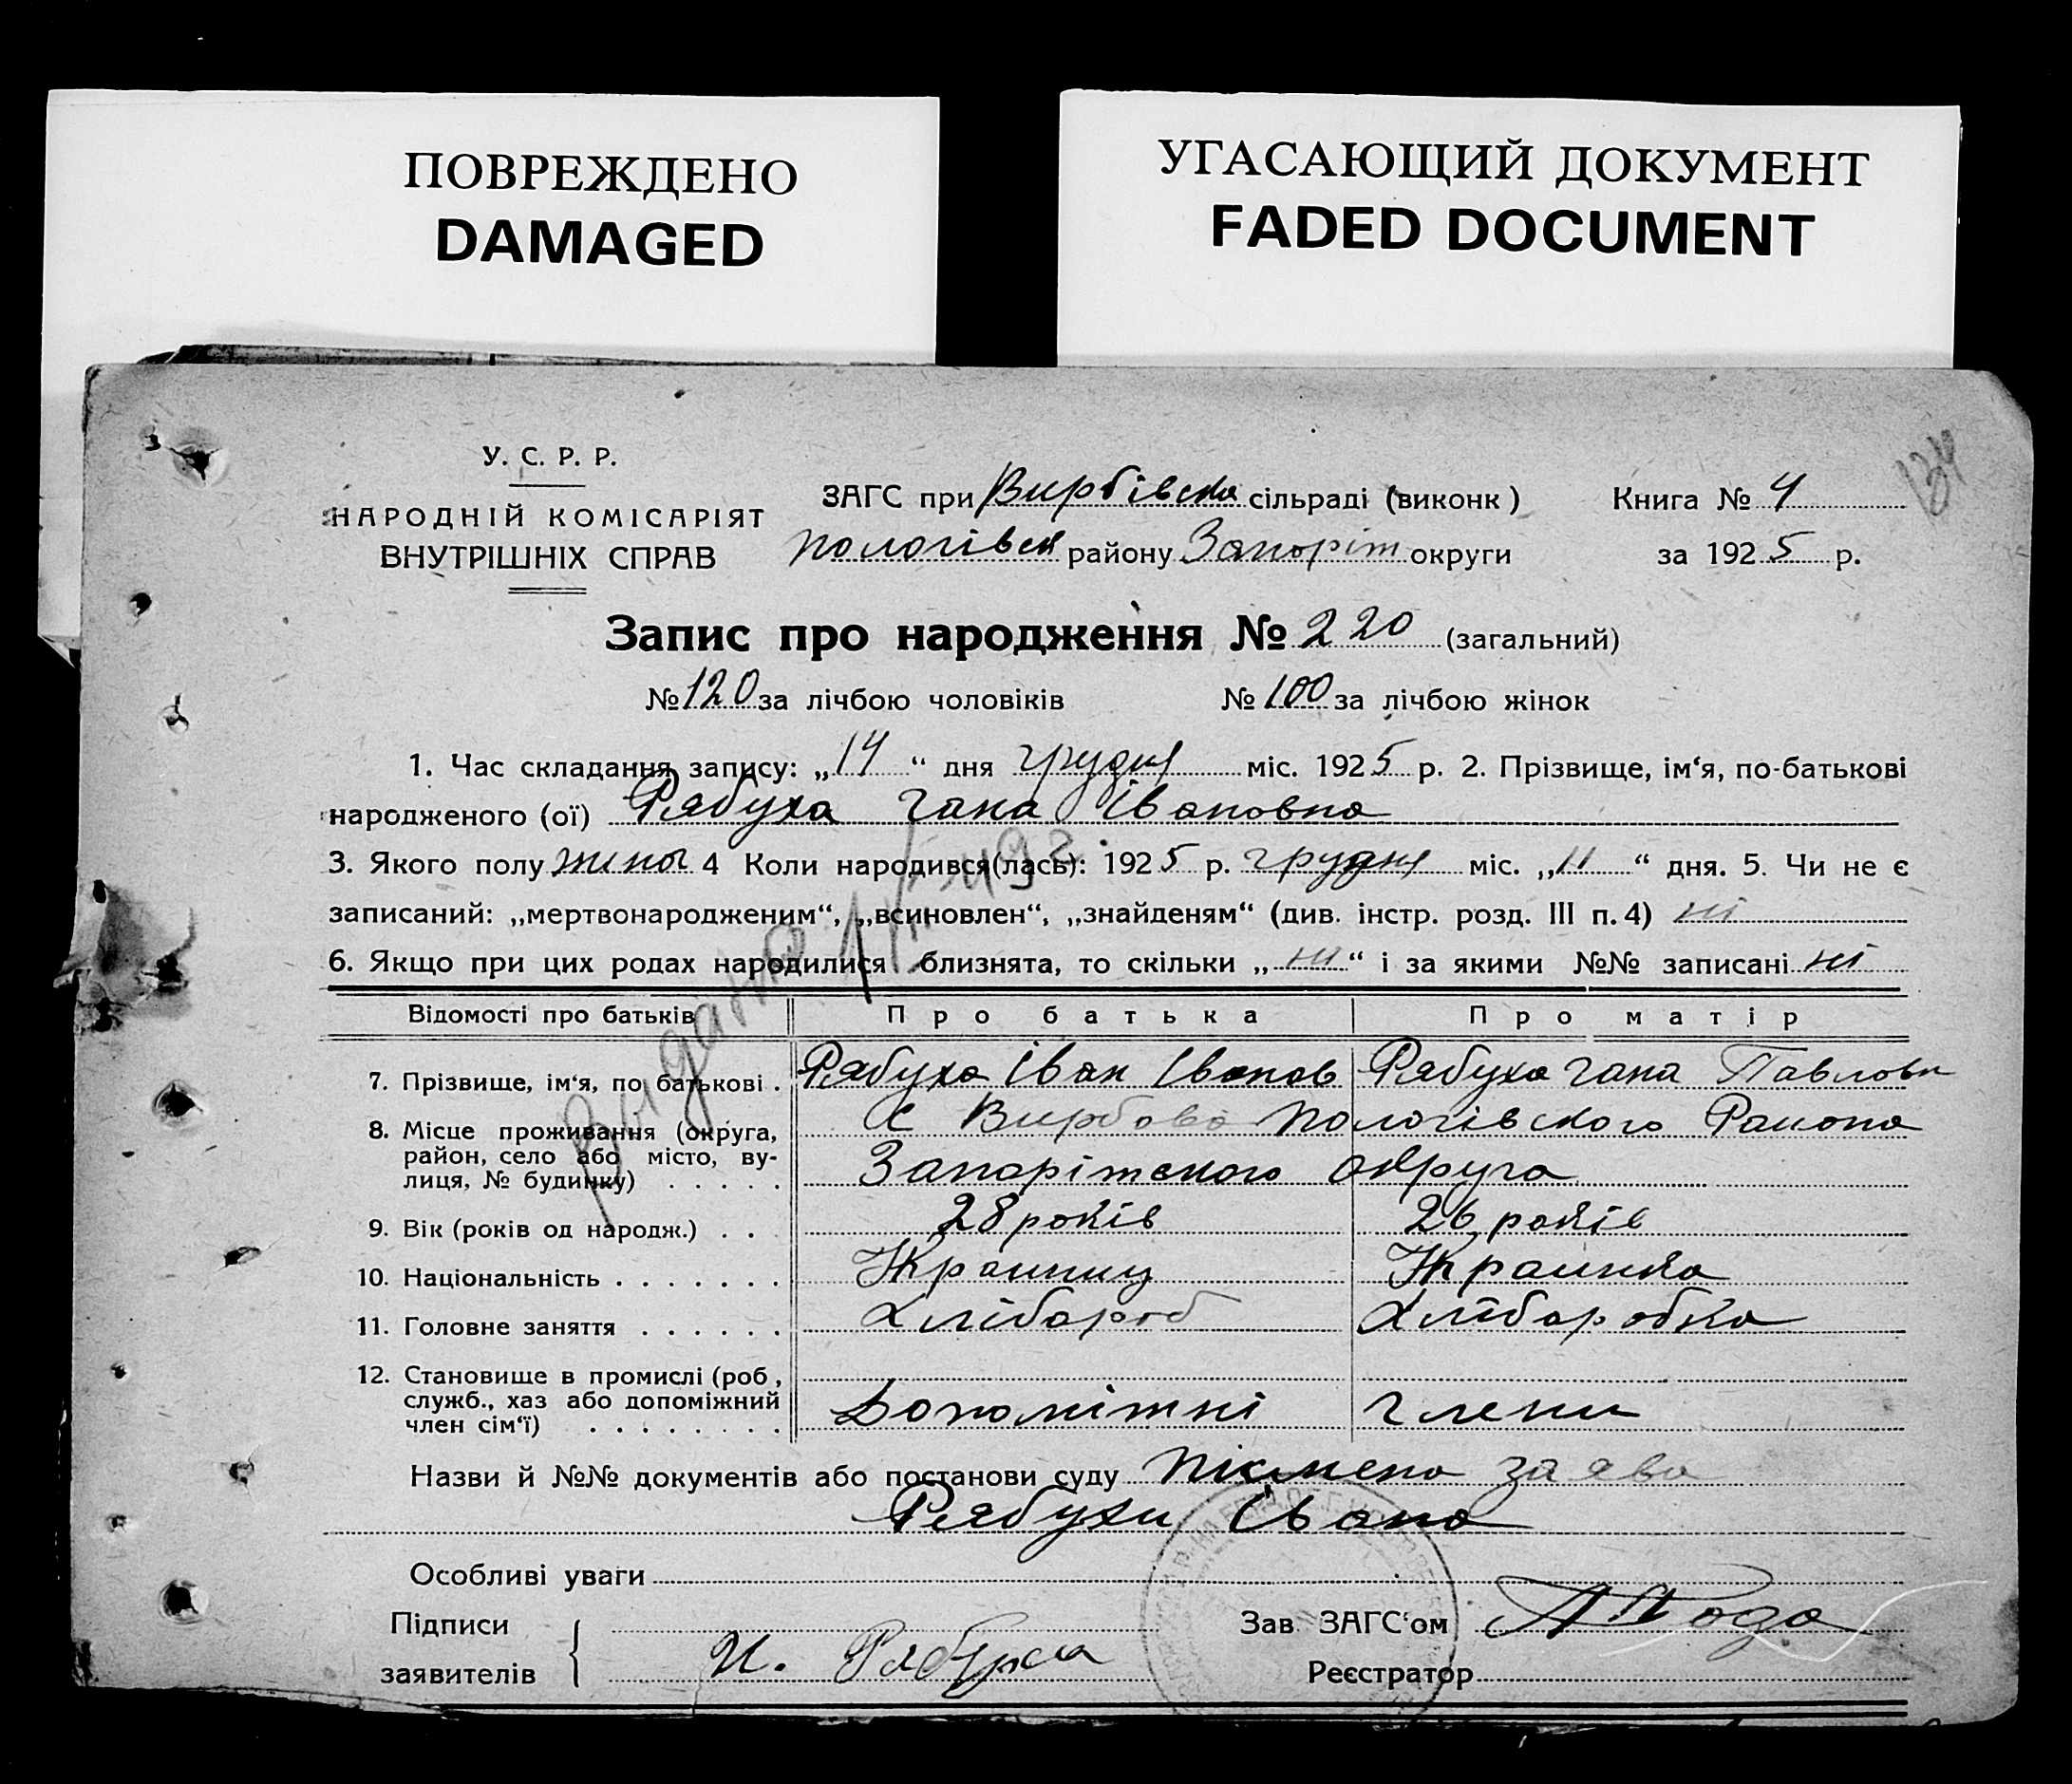 ПОВРЕЖДЕНО
DAMAGED
УГАСАЮЩИЙ ДОКУМЕНТ
FADED DOCUMENT
134
У. С. Р. Р.
НАРОДНІЙ КОМІСАРІЯТ
ВНУТРІШНІХ СПРАВ
ЗАГС при Вирбівска сільраді (виконк) Книга № 4
пологівск району Запоріж округи за 1925 р.
Запис про народження № 220 (загальний)
№ 120 за лічбою чоловіків № 100 за лічбою жінок
1. Час складання запису: „14“ дня грудня міс. 1925 р. 2. Прізвище, ім‘я, по-батькові
народженого (ої) Рябуха Гана Івановна
3. Якого полу жіноч 4 Коли народився(лась): 1925 р. грудня міс. „11“ дня. 5. Чи не є
записаний: „мертвонародженим“, „всиновлен“, „знайденям“ (див. інстр. розд. III п. 4) ні
6. Якщо при цих родах народилися близнята, то скільки „ні“ і за якими №№ записані ні
Відомості про батьків Про батька Про матір
7. Прізвище, ім‘я, по батькові . Рябуха Іван Іванов Рябуха Гана Павловн
8. Місце проживання (округа, район, село або місто, вулиця, № будинку) . . . . . С Вирбово Пологівского Района
Запоріжского округа
9. Вік (років од народж.) . . . 28 років 26 років
10. Національність . . . . . . . Украинец Украинка
11. Головне заняття . . . . . . Хлібороб Хліборобка
12. Становище в промислі (роб, служб., хаз або допоміжний член сім‘ї) . . . . . . . . Допоміжні члени
Назви й №№ документів або постанови суду Пісмена заява
Рябухи Івана
Особливі уваги
Підписи
заявителів И. Рябуха
Зав ЗАГС‘ом
Реєстратор